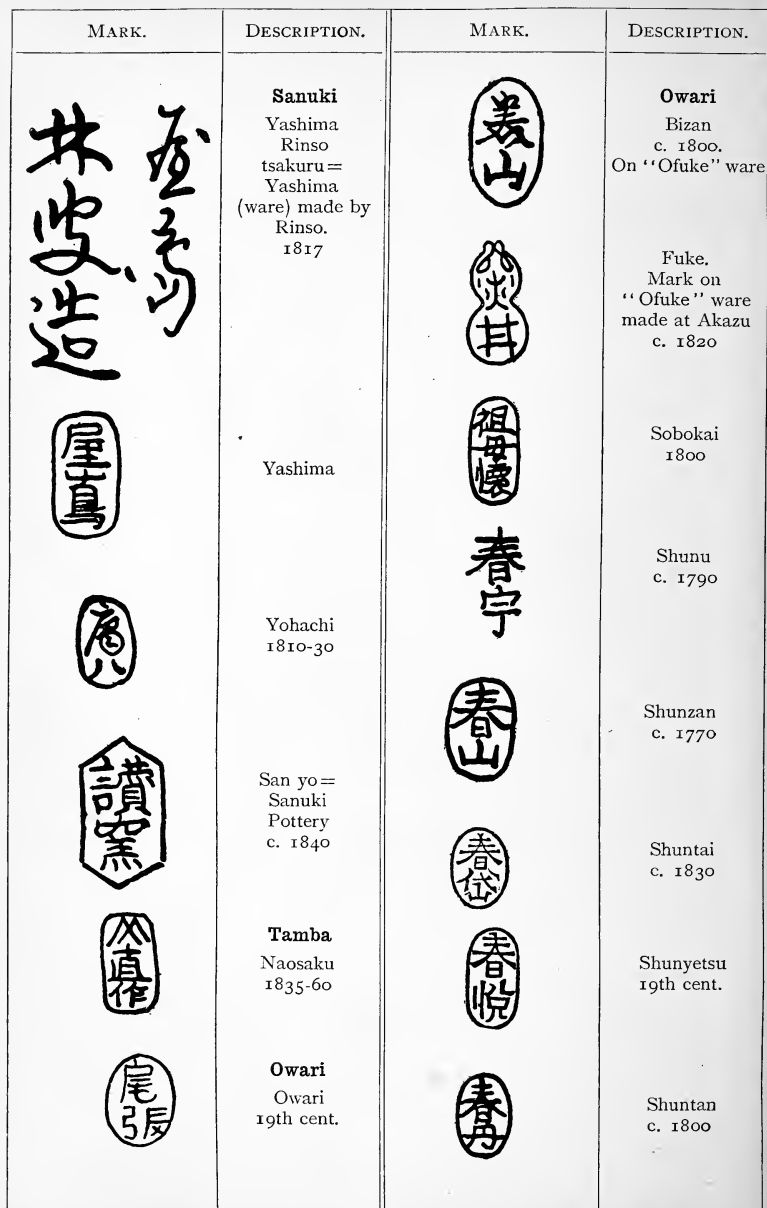 MARK. DESCRIPTION. MARK. DESCRIPTION.
林叟造
Sanuki
Yashima
Rinso
tsakuru=
Yashima
(ware) made by
Rinso.
1817
屋嶌
Yashima
八
Yohachi
1810-30
讃窯
San yo=
Sanuki
Pottery
c. 1840
直作
Tamba
Naosaku
1835-60
尾張
Owari
Owari
19th cent.
美山
Owari
Bizan
c. 1800.
On "Ofuke" ware
Fuke.
Mark on
"Ofuke" ware
made at Akazu
c. 1820
祖母懐
Sobokai
1800
春宇
Shunu
c. 1790
春山
Shunzan
c. 1770
春岱
Shuntai
c. 1830
春悦
Shunyetsu
19th cent.
春丹
Shuntan
c. 1800